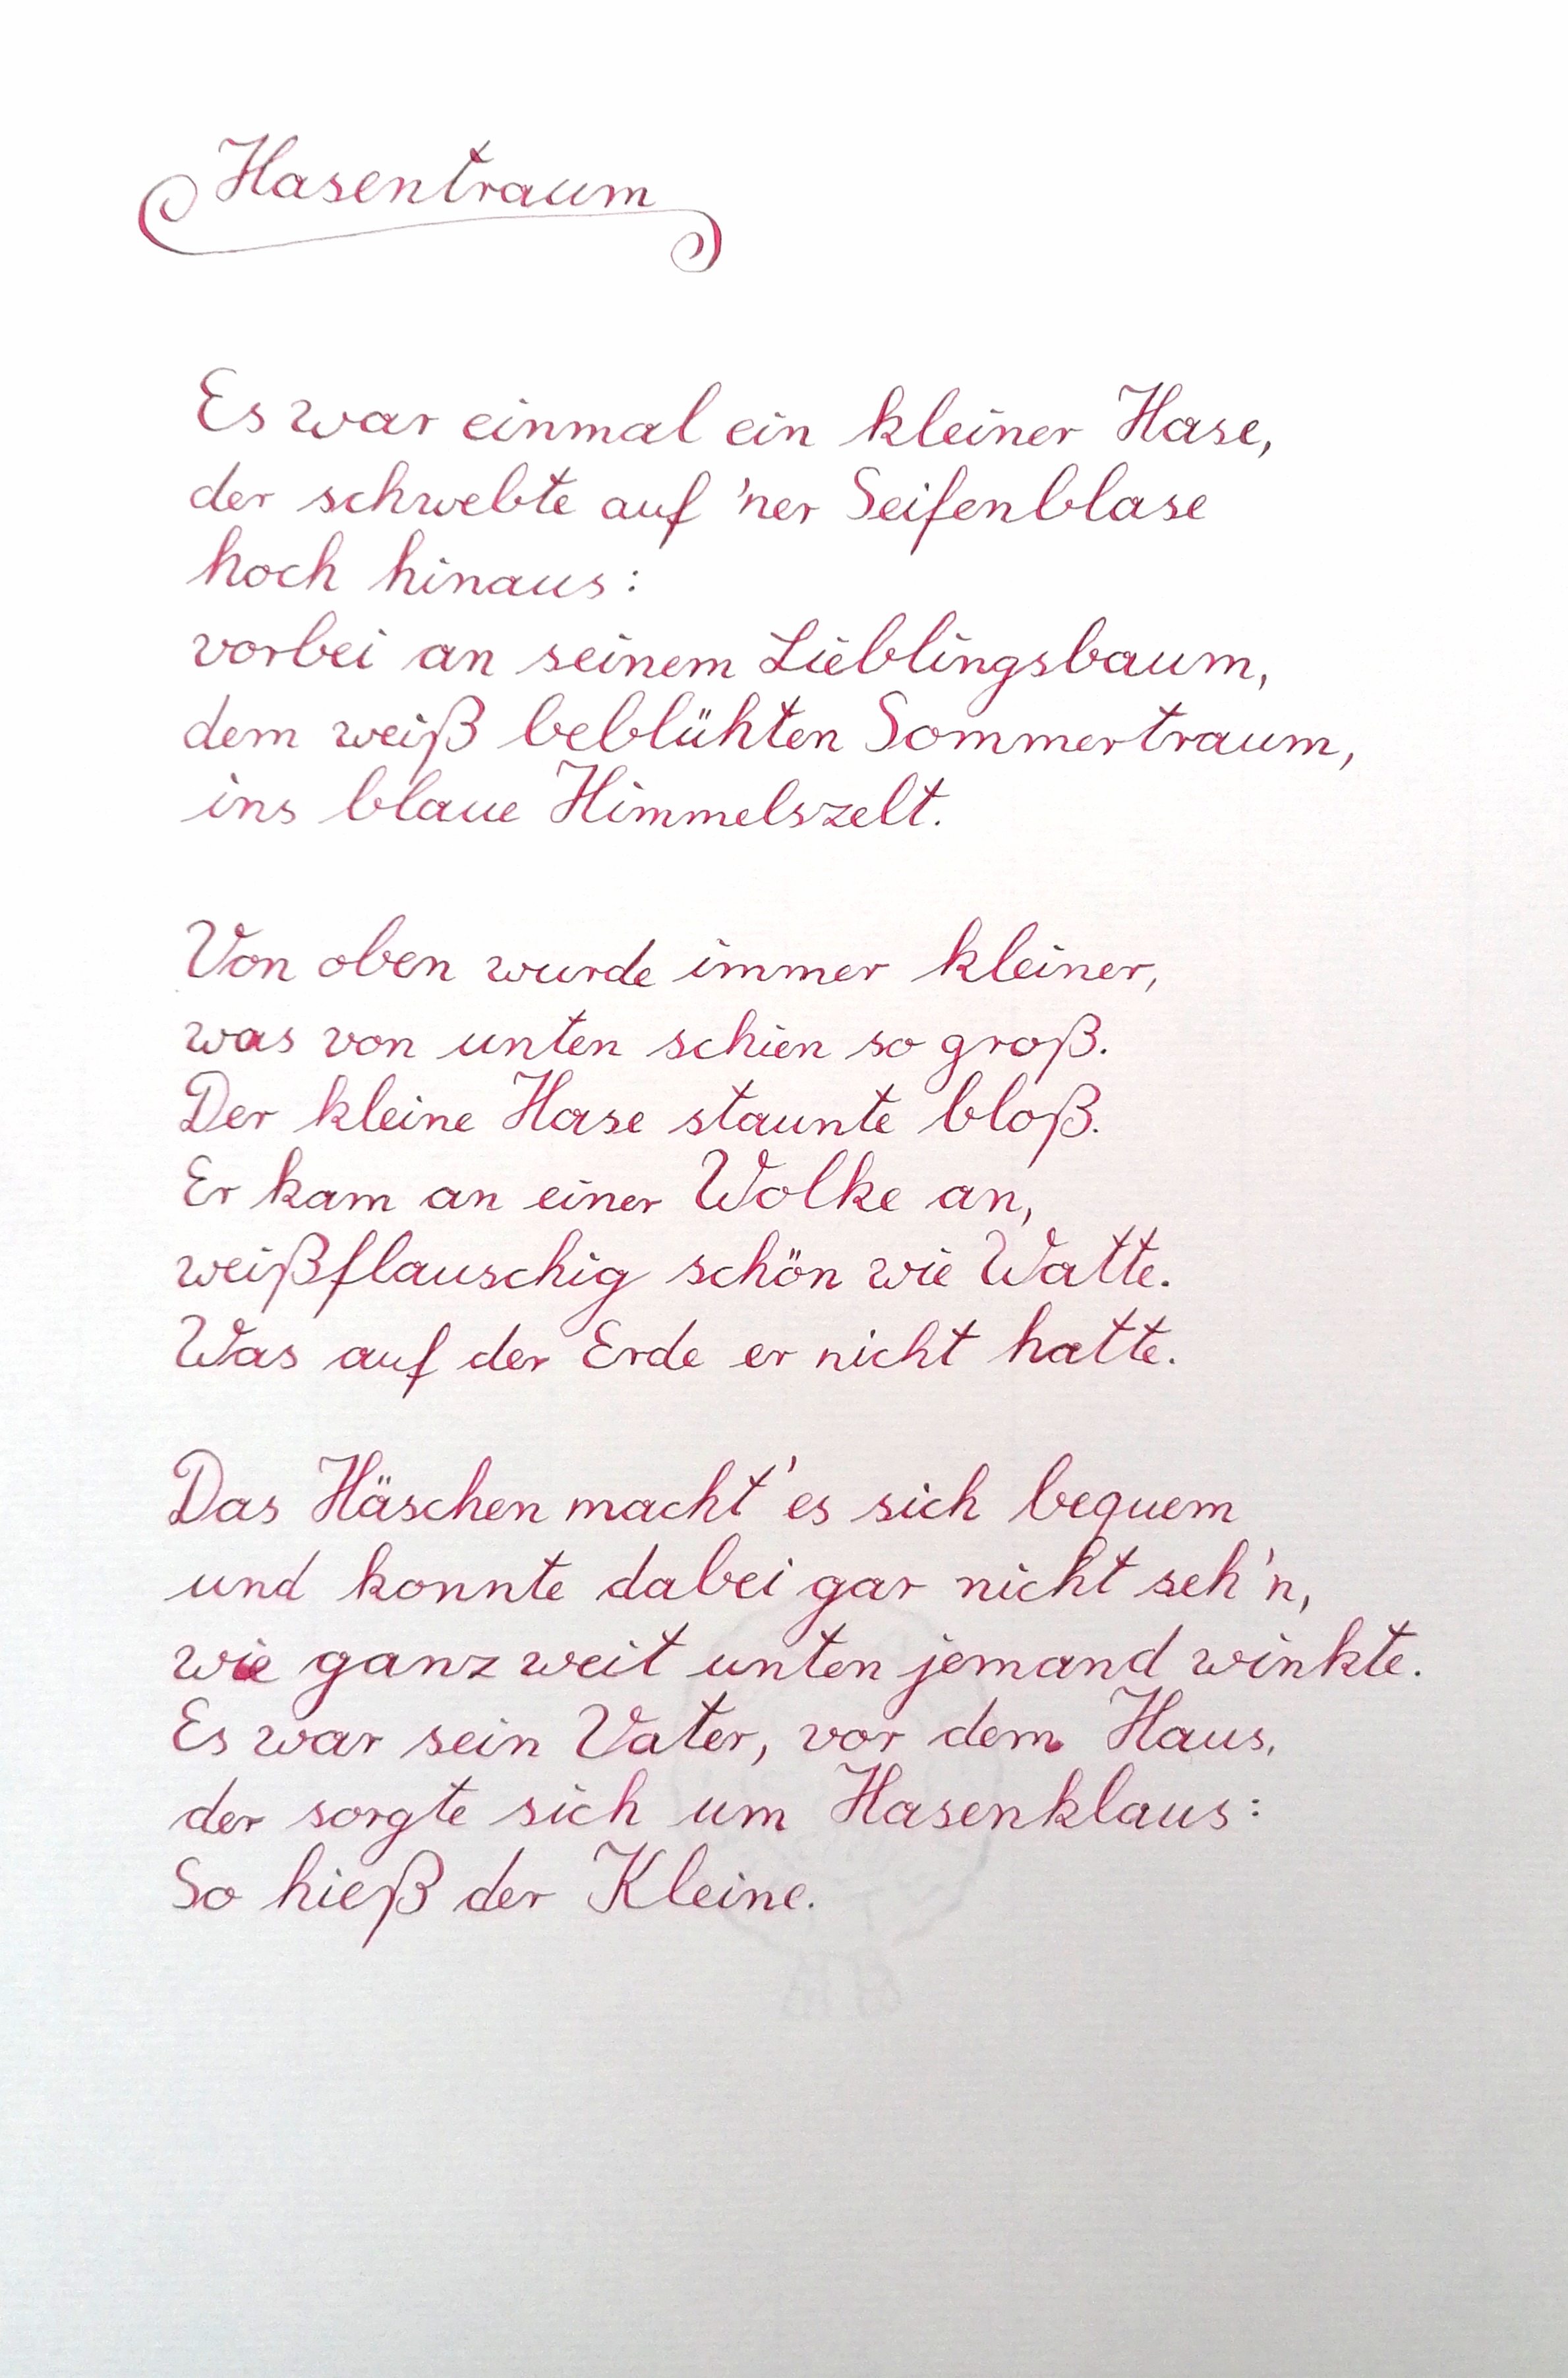 Hasentraum
Es war einmal ein kleiner Hase,
der schwebte auf 'ner Seifenblase
hoch hinaus:
vorbei an seinem Lieblingsbaum,
dem weiß beblühten Sommertraum,
ins blaue Himmelszelt.
Von oben wurde immer kleiner,
was von unten schien so groß.
Der kleine Hase staunte bloß.
Er kam an einer Wolke an,
weißflauschig schön wie Watte.
Was auf der Erde er nicht hatte.
Das Häschen macht' es sich bequem
und konnte dabei gar nicht seh'n,
wie ganz weit unten jemand winkte.
Es war sein Vater, vor dem Haus,
der sorgte sich um Hasenklaus:
So hieß der Kleine.